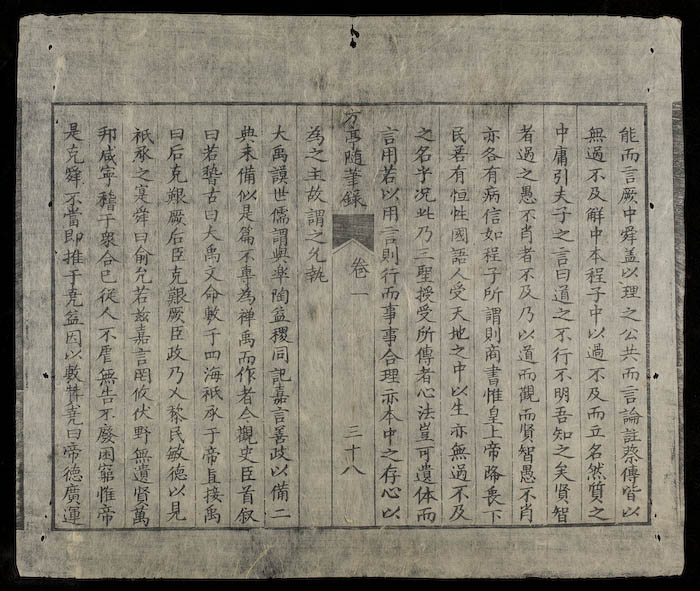 能而言厥中舜盖以理之公共而言論註蔡傳皆以
無過不及解中本程子中以過不及而立名然質之
中庸引夫子之言曰道之不行不明吾知之矣賢智
者過之愚不肖者不及乃以道而觀而賢智愚不肖
亦各有病信如程子所謂則商書惟皇上帝降衷下
民若有恒性國語人受天地之中以生亦無過不及
之名乎况此乃三聖授受所傳者心法豈可遺体而
言用若以用言則行而事事合理亦本中之存心以
為之主故謂之允執
方亭随筆録 卷一 三十八
大禹謨世儒謂與皐陶益稷同記嘉言善政以備二
典未備似是篇不專為禅禹而作者今觀史臣首叙
曰若稽古曰大禹文命敷于四海祇承于帝直接禹
曰后克艱厥后臣克艱厥臣政乃乂黎民敏德以見
祇承之寔舜曰俞允若兹嘉言罔攸伏野無遺賢萬
邦咸寧稽于衆舍已従人不虐無告不廢困窮惟帝
是克舜不當即推于尭益因以敷賛尭曰帝德廣運